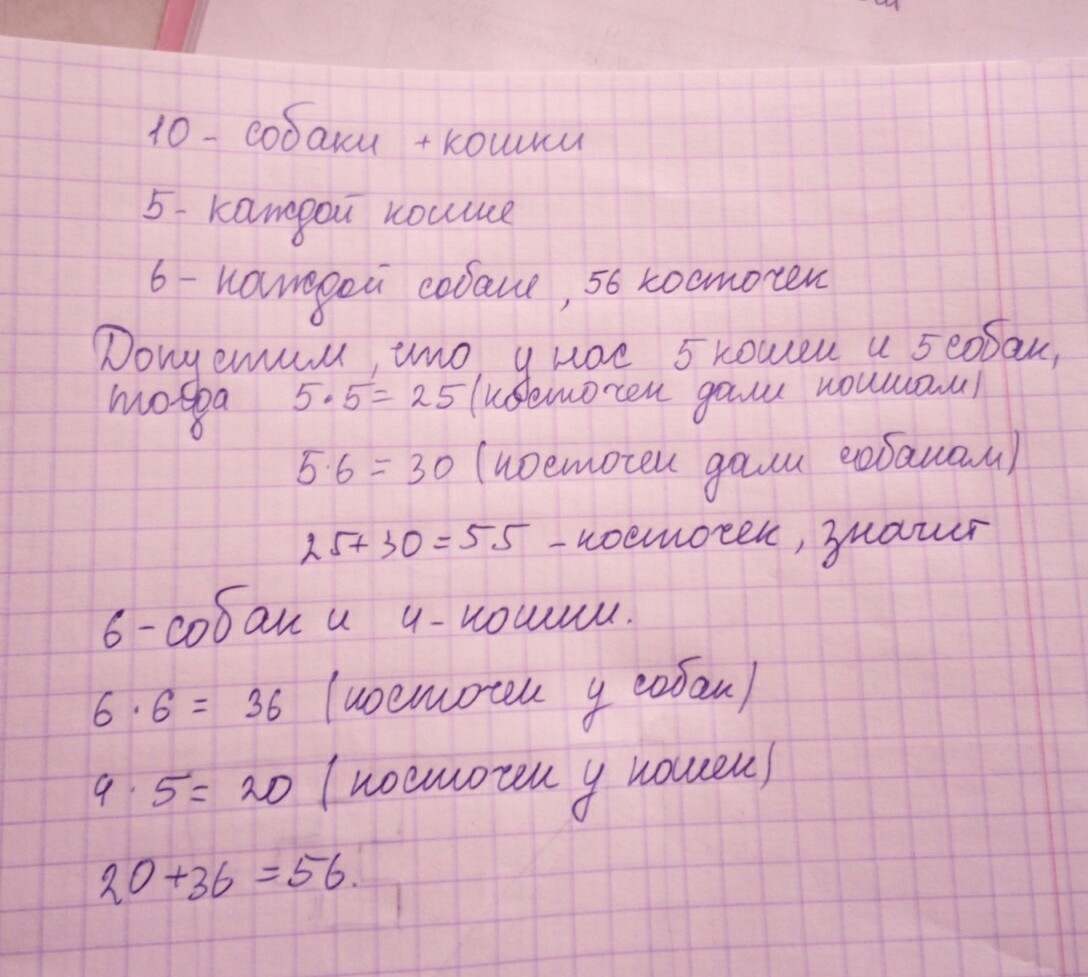 10 - собаки + кошки
5 - каждой кошке
6 - каждой собаке, 56 косточек
Допустим, что у нас 5 кошек и 5 собак,
тогда 5·5 = 25 (косточек дали кошкам)
5·6 = 30 (косточек дали собакам)
25+30=55 - косточек, значит
6 - собак и 4 - кошки.
6·6 = 36 (косточек у собак)
4·5 = 20 (косточек у кошек)
20+36=56.